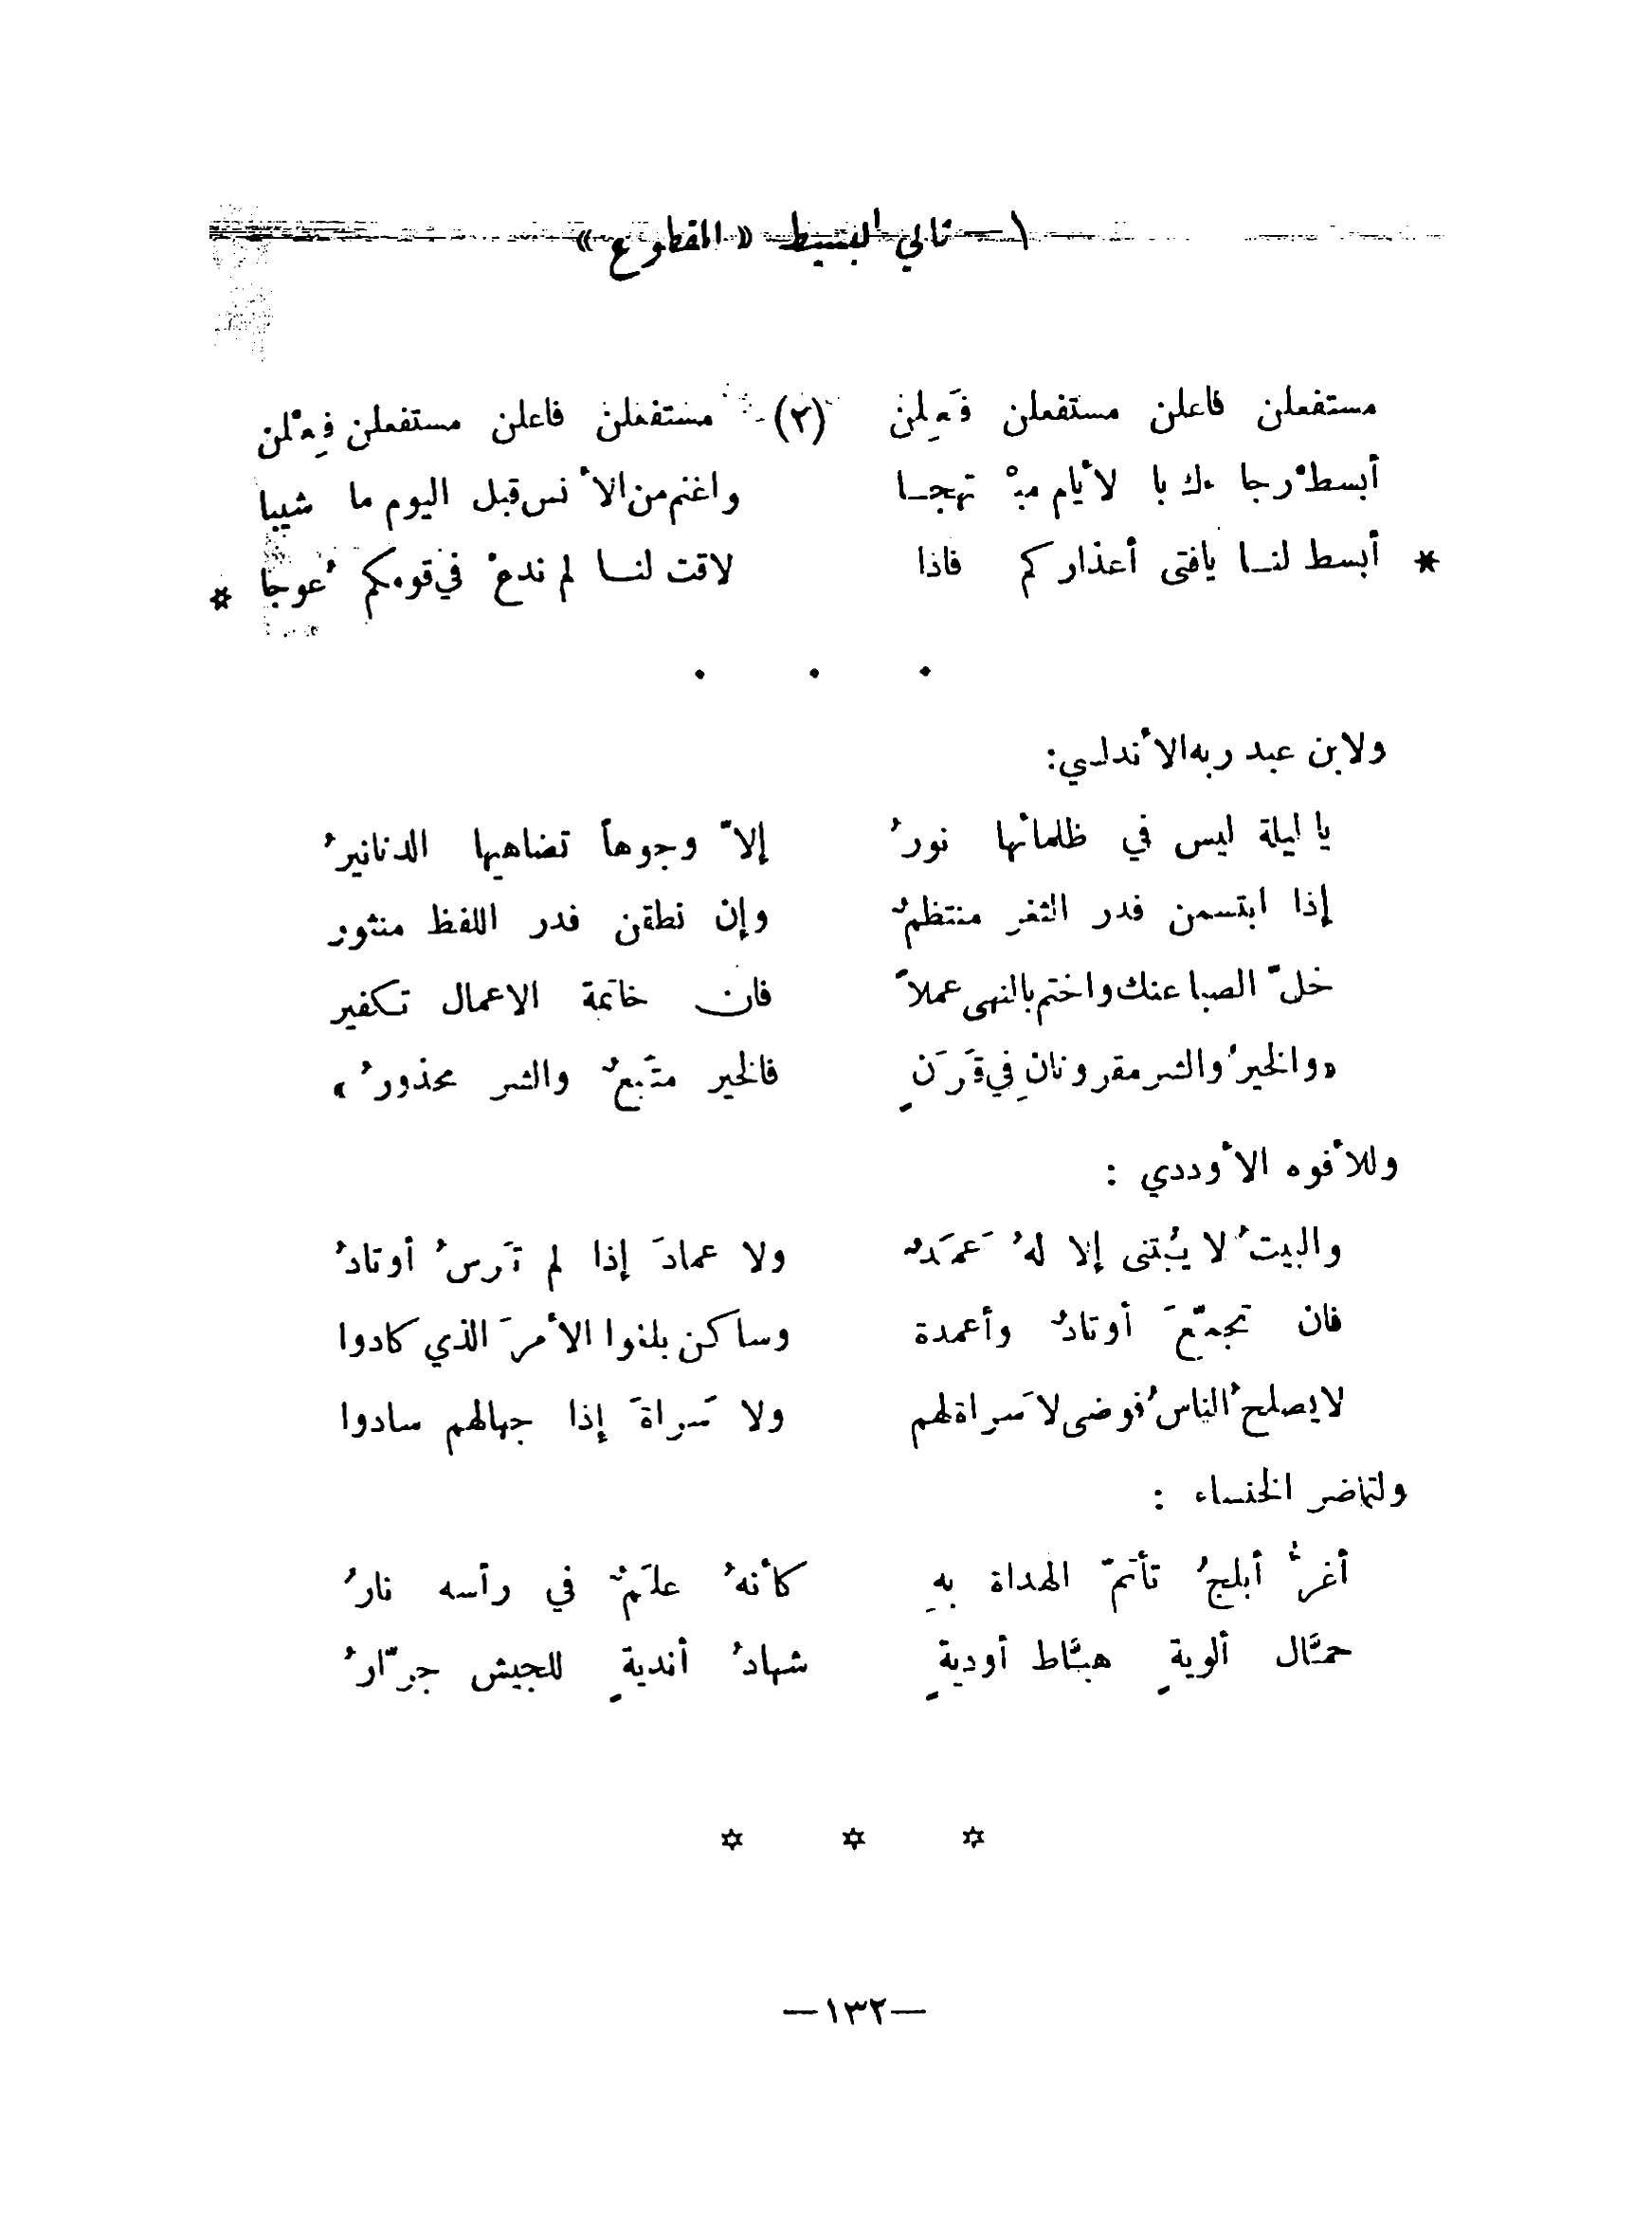 ١ — ثاني البسيط « المقطوع »
مستفعلن فاعلن مستفعلن فَعِلن (٢) مستفعلن فاعلن مستفعلن فِعْلن
أبسطْ رجا ءك با لأيام مبْ تهجـا واغنم من الأنس قبل اليوم ما شيبا
* أبسط لنـا يافتى أعذاركم فاذا لاقت لنـا لم ندعْ في قومكم عُوجا *
. . .
ولابن عبد ربه الأندلسي:
يا ليلة ليس في ظلمائها نورُ إلاّ وجوهاً تضاهيها الدنانيرُ
إذا ابتسمن فدر الثغر منتظمٌ وإن نطقن فدر اللفظ منثور
خلّ الصبا عنك واختم بالنهى عملاً فان خاتمة الاعمال تكفير
«والخيرُ والشر مقرونانِ في قَرَنٍ فالخير متّبعٌ والشر محذورُ»
وللأفوه الأوددي :
والبيتُ لا يُبتنى إلا لهُ عَمَدٌ ولا عمادَ إذا لم تَرسُ أوتادُ
فان تجمّعَ أوتادٌ وأعمدة وساكن بلغوا الأمرَ الذي كادوا
لايصلحُ الناسُ فوضى لا سَراة لهم ولا سَراةَ إذا جهالهم سادوا
ولتماضر الخنساء :
أغرُّ أبلجُ تأتمّ الهداة بهِ كأنهُ علَمٌ في رأسه نارُ
حمَّال ألويةٍ هبَّاط أوديةٍ شهادُ أنديةٍ للجيش جرّارُ
* * *
—١٣٢—